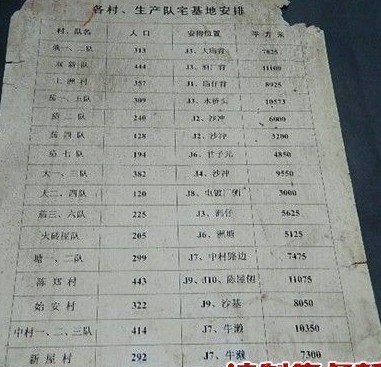 各村、生产队宅基地安排
村、队名 人口 安排位置 平方米
一、二队 313 J3、大 7825
双新队 444 J3、厂背 11100
上洲村 357 J1、背 8925
茄一、五队 309 J3、水桥头 10573
茄二队 240 J2、沙冲 6000
茄四队 128 J2、沙冲 3200
茄七队 194 J6、甘子元 4850
大一、三队 382 J4、沙冲 9550
大二、四队 120 J8、电镀厂侧 3000
茄三、六队 225 J3、仔 5625
火砖屋队 205 J6、洲塘 5125
塘一、二队 299 J7、中村路边 7475
陈郑村 443 J9、J10、陈屋侧 11075
始安村 322 J9、沙基 8050
中村一、二、三队 414 J7、牛濑 10350
新屋村 292 J7、牛濑 7300